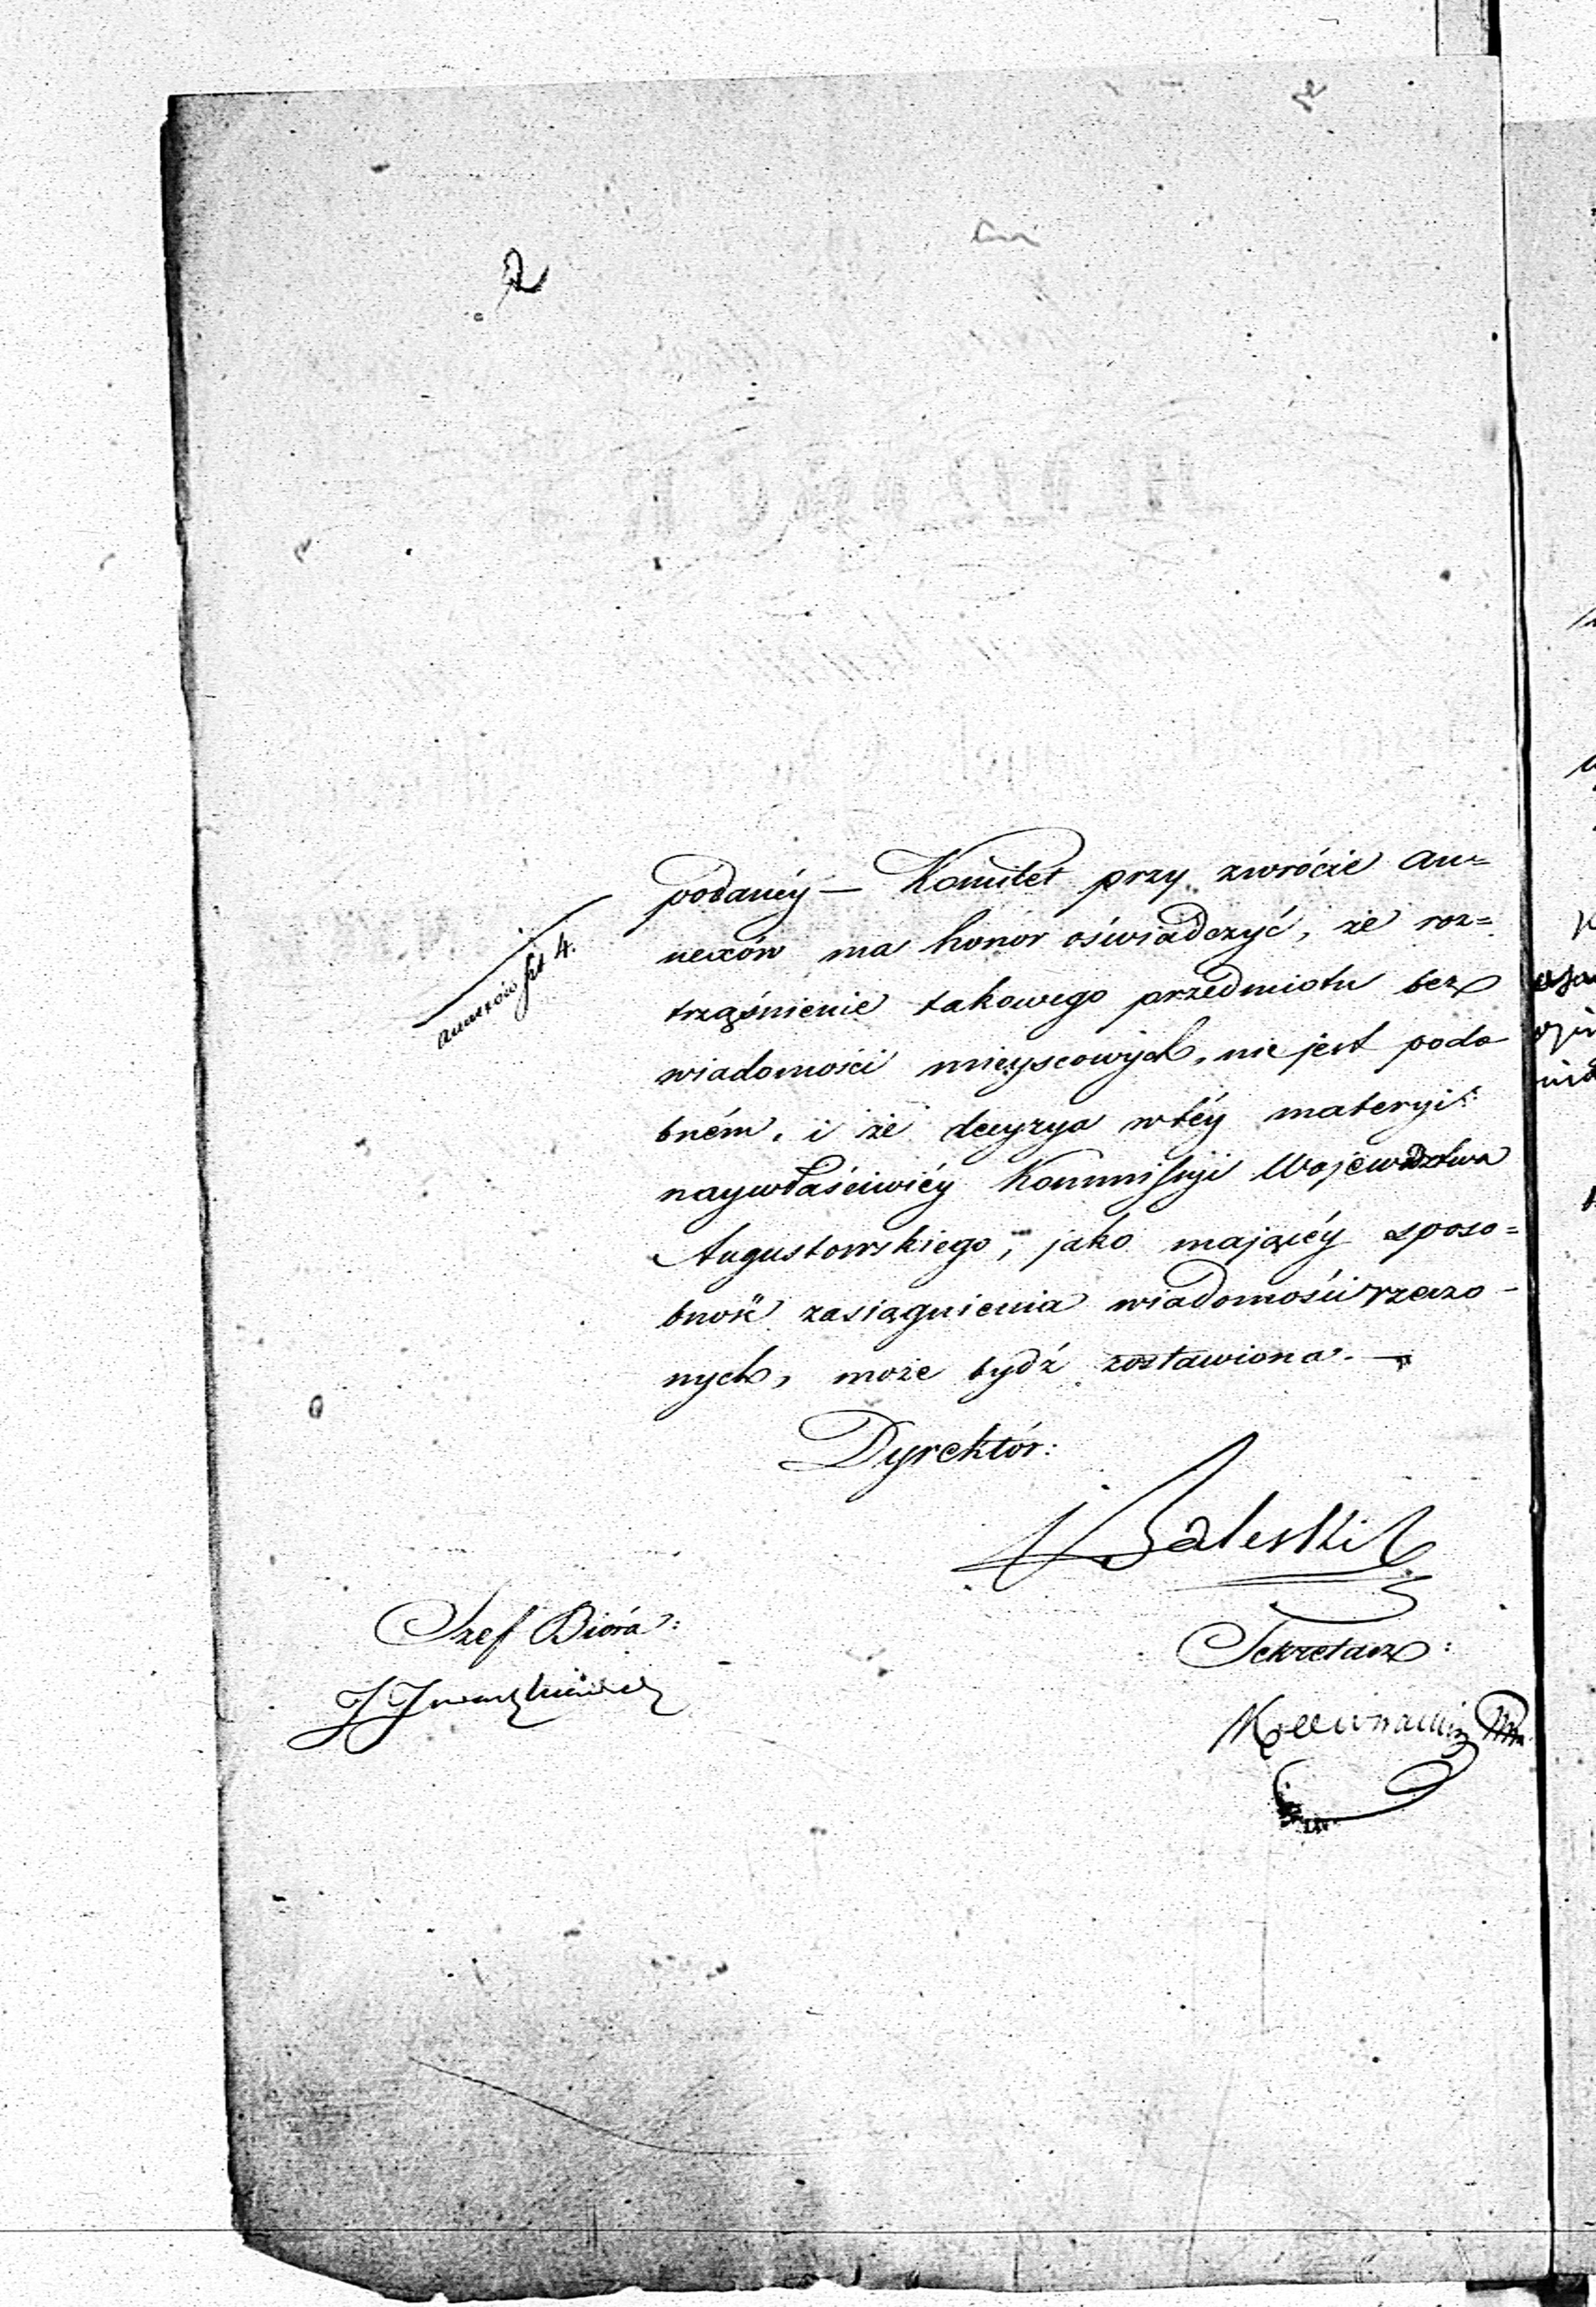 2
annexów szt 4.
podanéy — Komitet przy zwrócie an=
nexów ma honor oświadczyć, że roz=
trząśnienie takowego przedmiotu bez
wiadomości mieyscowych, nie jest podo
bném, i że decyzya w téy materyi
naywłaściwiéy Kommissyi Województwa
Augustowskiego, jako mającéy sposo=
bność zasiągnienia wiadomości rzeczo-
nych, może bydź zostawiona. —
Dyrektór:
Zaleski
Szef Bióra:
Sekretarz: